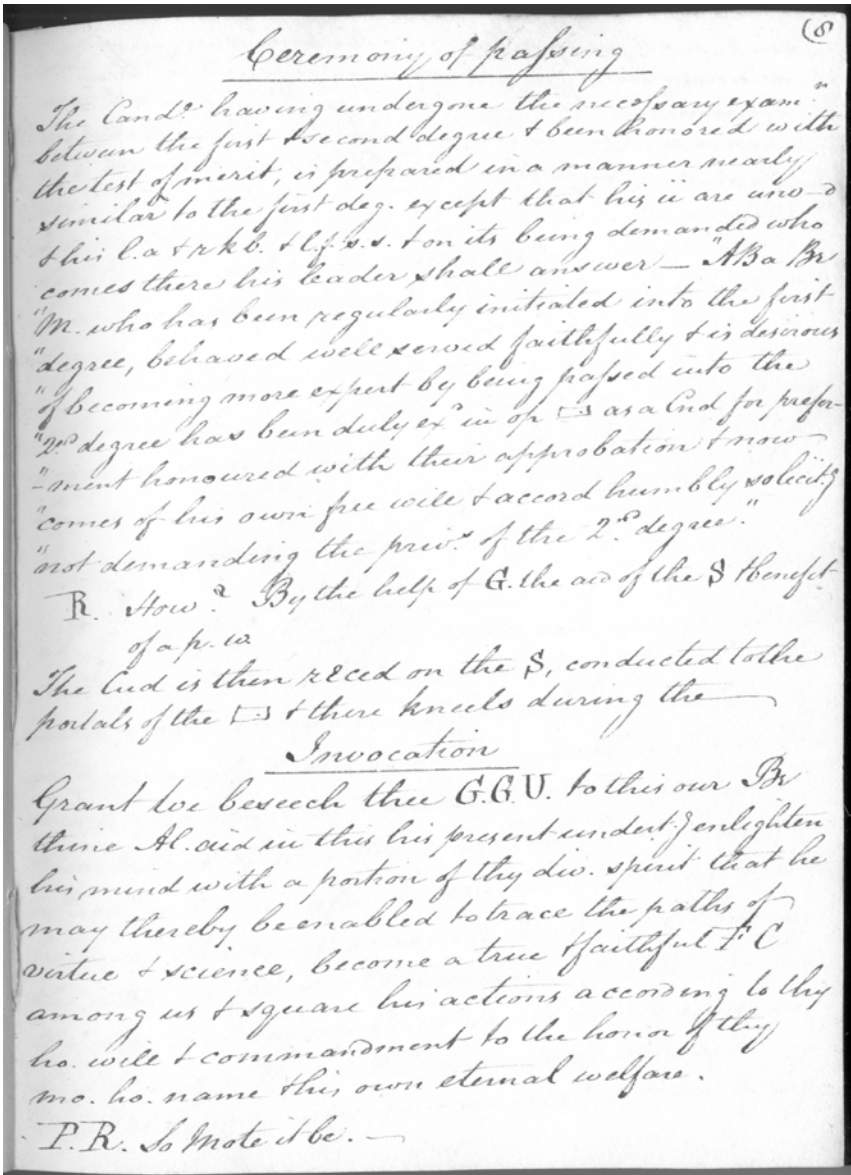 (8
Ceremony of passing
The Cand.e having undergone the necessary exam.n
between the first & second degree & been honored with
the test of merit, is prepared in a manner nearly
similar to the first deg. except that his ii are uno-d
& his l. a & r k b. & l. f. s. s. & on its being demanded who
comes there his leader shall answer — "A B a Br
"M. who has been regularly initiated into the first
"degree, behaved well served faithfully & is desirous
"of becoming more expert by being passed into the
"2nd degree has been duly exd in op ▭ as a Cnd for prefer-
"-ment honoured with their approbation & now
"comes of his own free will & accord humbly solicit.g
"not demanding the privs of the 2nd degree."
R. How? By the help of G. the aid of the S & benefit
of a p. w.
The Cnd is then reced on the S, conducted to the
portals of the ▭ & there kneels during the —
Invocation
Grant we beseech thee G.G.U. to this our Br
thine Al. aid in this his present undert.g enlighten
his mind with a portion of thy div. spirit that he
may thereby be enabled to trace the paths of
virtue & science, become a true & faithful F C
among us & square his actions according to thy
ho. will & commandment to the honor of thy
mo. ho. name & his own eternal welfare.
P. R. So mote it be. —